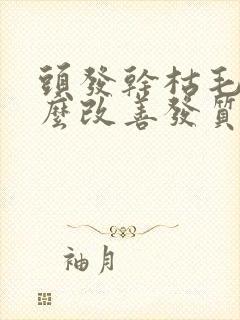 頭發幹枯毛
麼改善發質
袖月